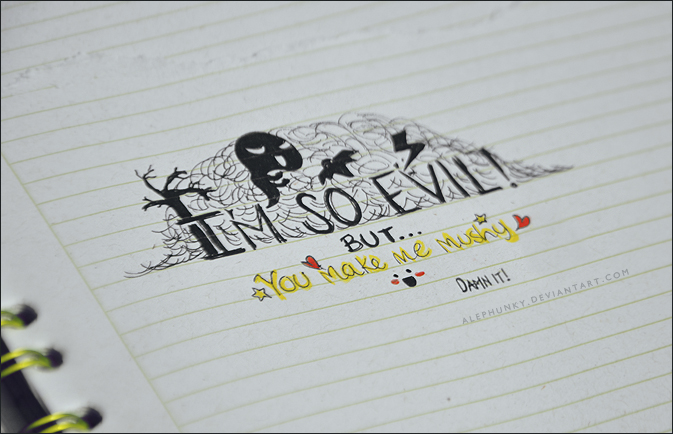 I'M SO EVIL!
BUT...
You make me mushy
DAMN IT!
ALEPHUNKY.DEVIANTART.COM